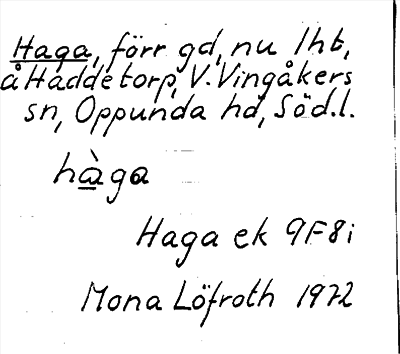 Haga, förr gd, nu lht,
å Haddetorp, V. Vingåkers
sn, Oppunda hd, Söd.l.
hàga
Haga ek 9F8i
Mona Löfroth 1972